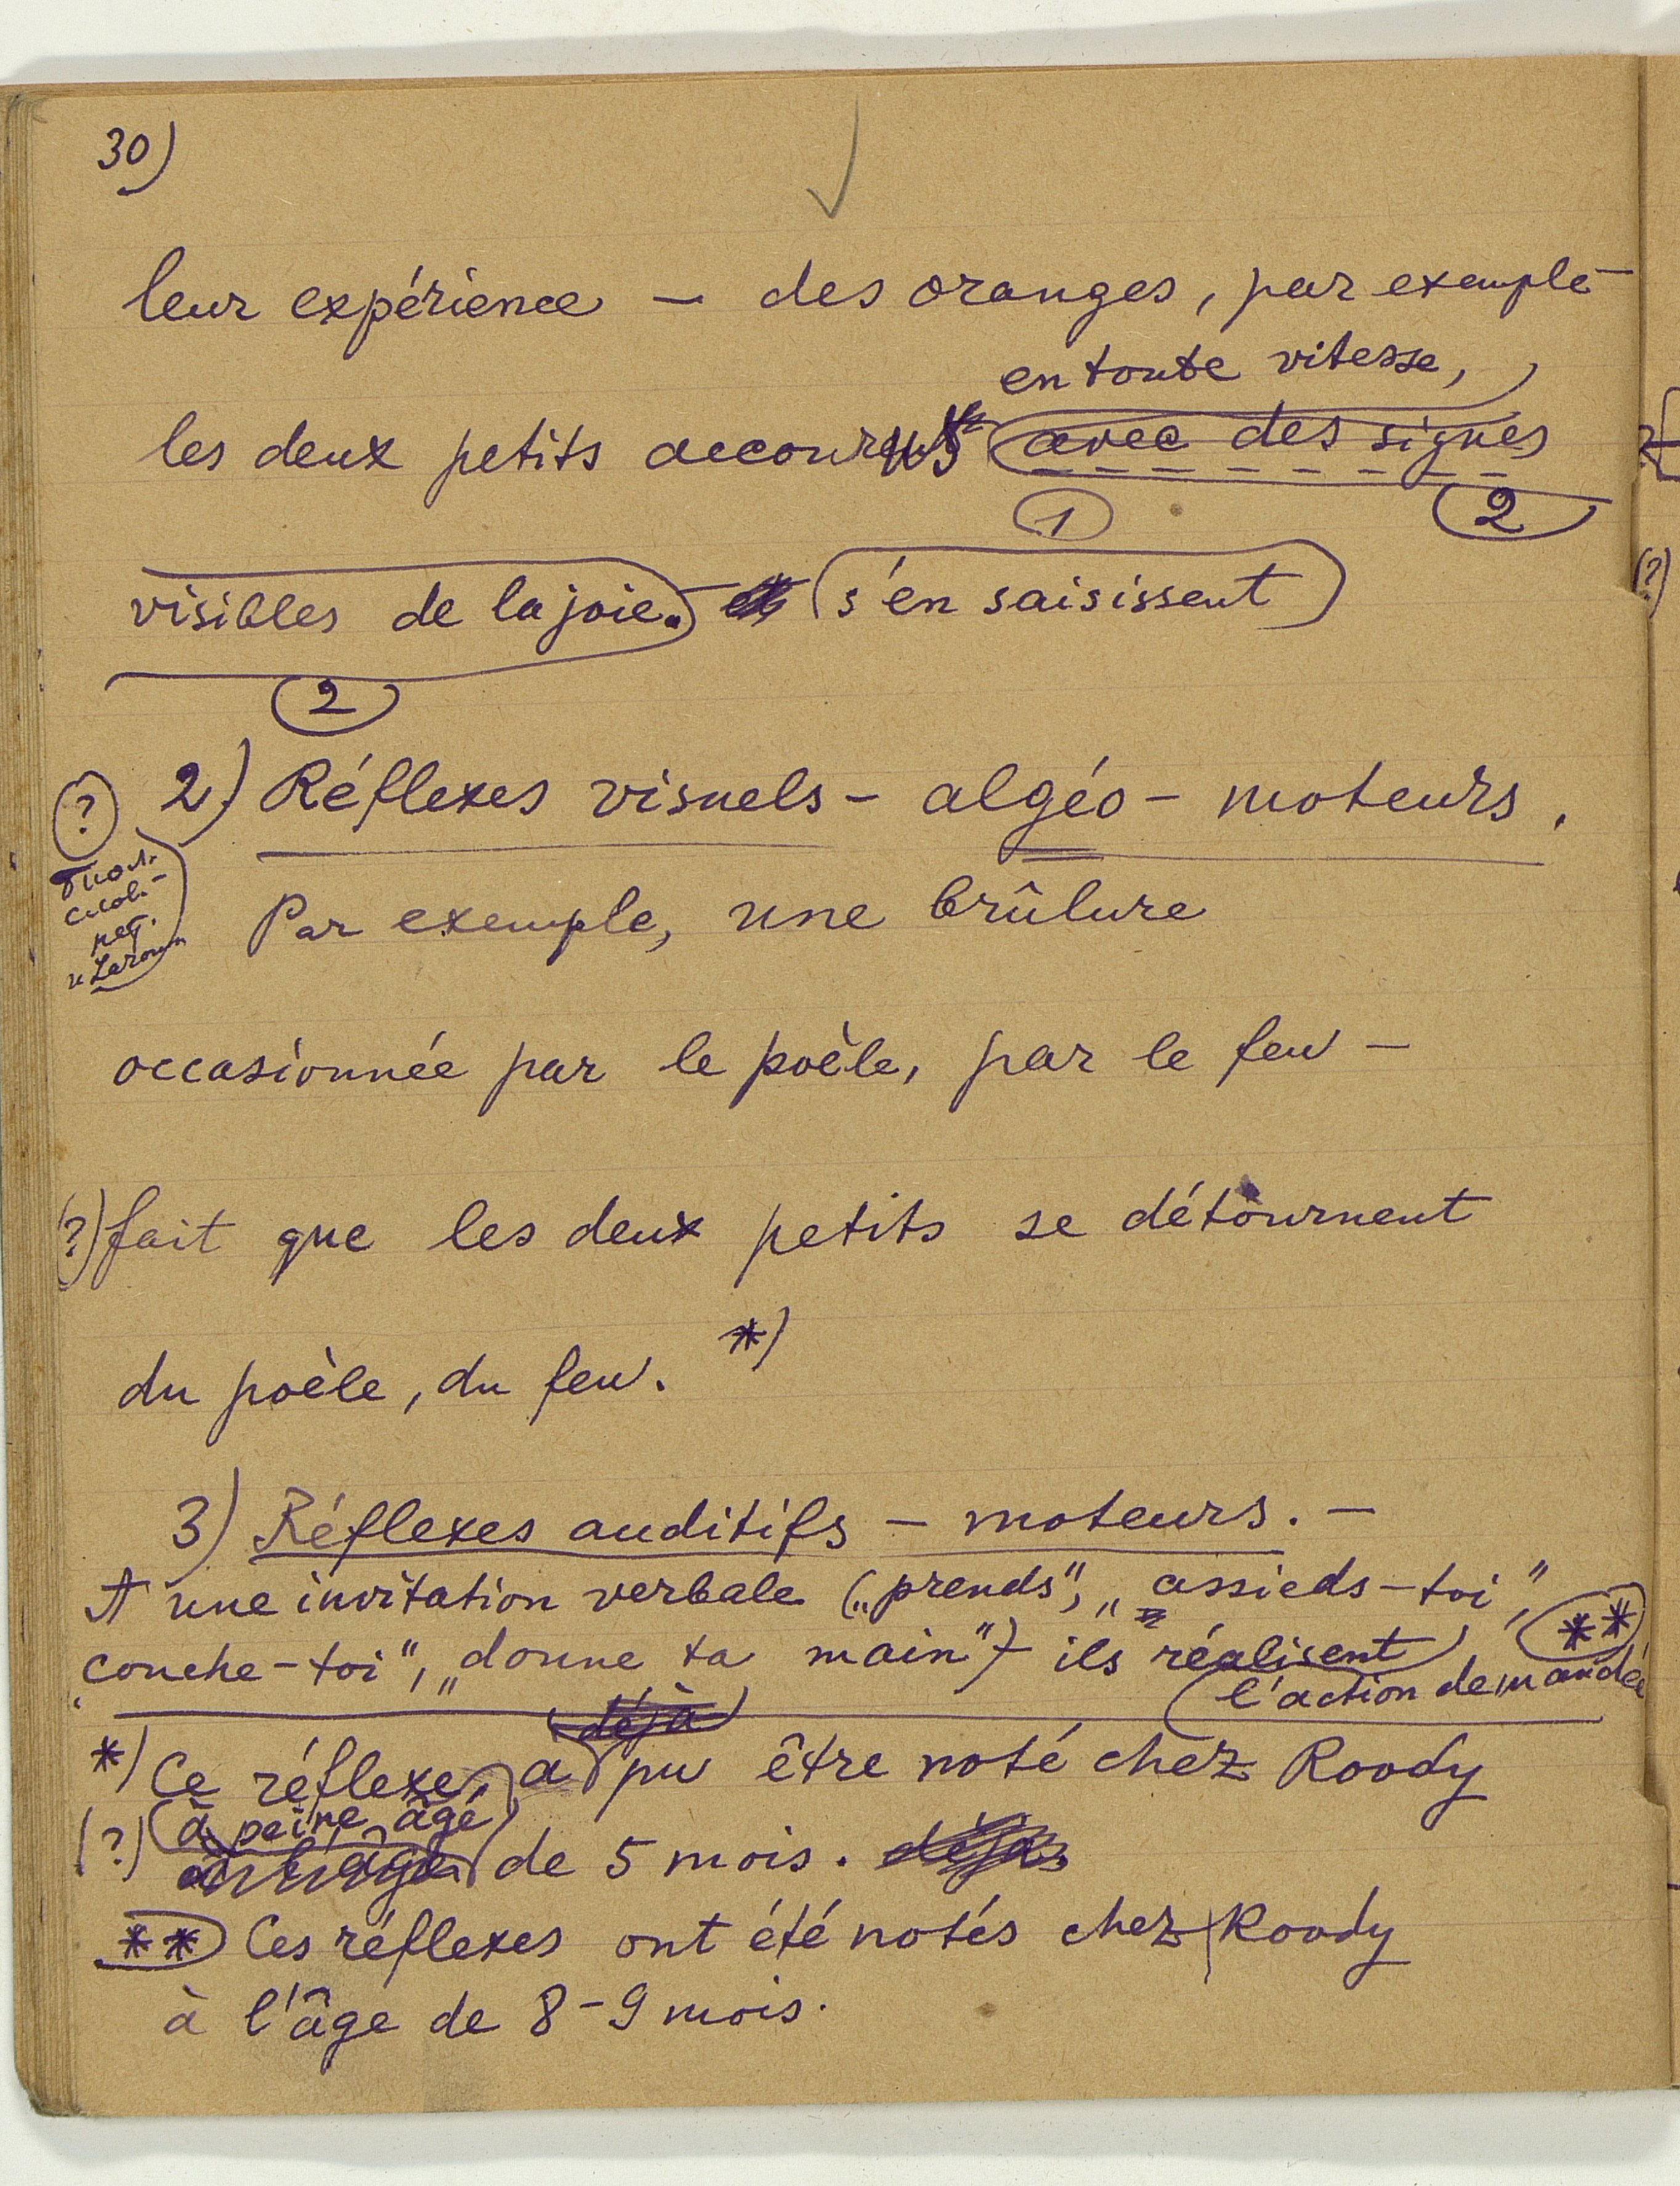 30)
leur expérience — des oranges, par exemple —
en toute vitesse,
les deux petits accourent avec des signes
1 2
visibles de la joie. et s'en saisissent
2
(?) 2) Réflexes visuels - algéo - moteurs.
Par exemple, une brûlure
occasionnée par le poèle, par le feu —
(?) fait que les deux petits se détournent
du poèle, du feu. *)
3) Réflexes auditifs - moteurs. —
A une invitation verbale („prends", „assieds-toi",
„couche-toi", „donne ta main") ils réalisent **
l'action demandée
déjà
*) Ce réflexe, a pu être noté chez Roody
à peine âgé
(?) à l'âge de 5 mois. déjà
** Ces réflexes ont été notés chez Roody
à l'âge de 8-9 mois.